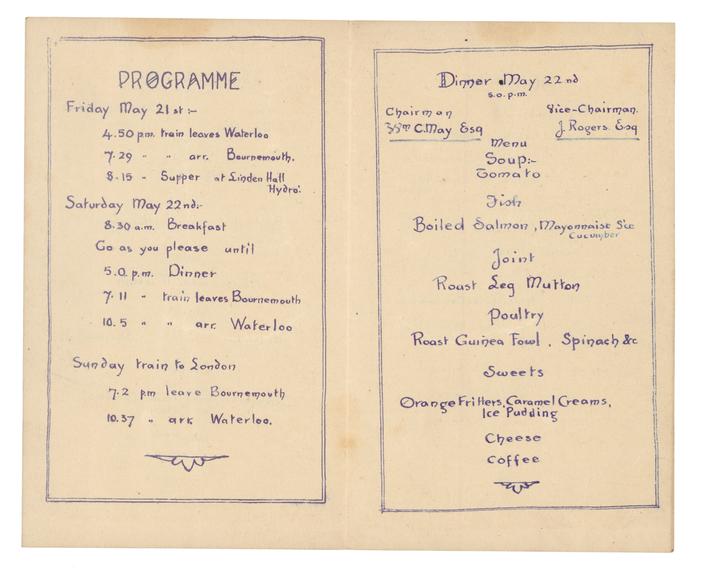 PROGRAMME
Friday May 21st:-
4.50 p.m. train leaves Waterloo
7.29 " " arr. Bournemouth.
8.15 " Supper at Linden Hall
Hydro.
Saturday May 22nd:-
8.30 a.m. Breakfast
Go as you please until
5.0. p.m. Dinner
7.11 " train leaves Bournemouth
10.5 " " arr. Waterloo
Sunday train to London
7.2 pm leave Bournemouth
10.37 " arr. Waterloo.
Dinner May 22nd
5.0. p.m.
Chairman Vice-Chairman.
C. May Esq J. Rogers Esq
Menu
Soup:-
Tomato
Fish
Boiled Salmon, Mayonnaise S'ce
Cucumber
Joint
Roast Leg Mutton
Poultry
Roast Guinea Fowl. Spinach &c
Sweets
Orange Fritters, Caramel Creams,
Ice Pudding
Cheese
Coffee